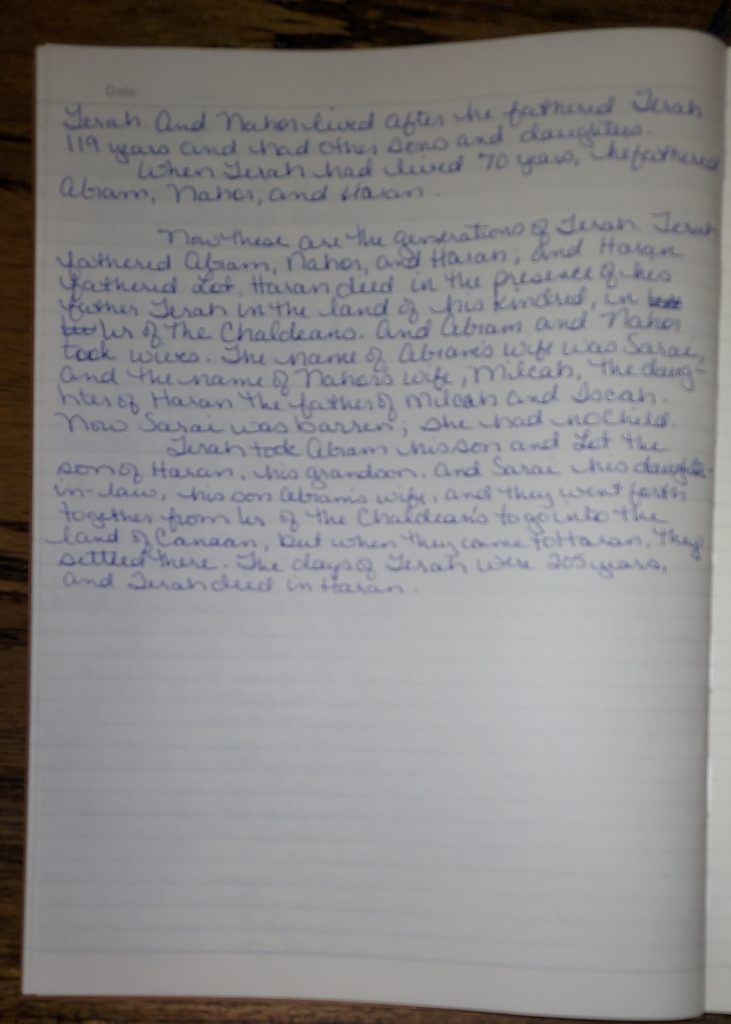 Date
Terah And Nahor lived after he fathered Terah
119 years and had other sons and daughters.
When Terah had lived 70 years, he fathered
Abram, Nahor, and Haran.
Now these are the generations of Terah. Terah
fathered Abram, Nahor, and Haran; and Haran
fathered Lot. Haran died in the presence of his
father Terah in the land of his kindred, in
Ur of the Chaldeans. And Abram and Nahor
took wives. The name of Abram's wife was Sarai,
and the name of Nahor's wife, Milcah, the daug-
hter of Haran the father of Milcah and Iscah.
Now Sarai was barren; she had no child.
Terah took Abram his son and Lot the
son of Haran, his grandson, and Sarai his daughter-
in-law, his son Abram's wife, and they went forth
together from Ur of the Chaldean's to go into the
land of Canaan, but when they came to Haran, they
settled there. The days of Terah were 205 years,
and Terah died in Haran.